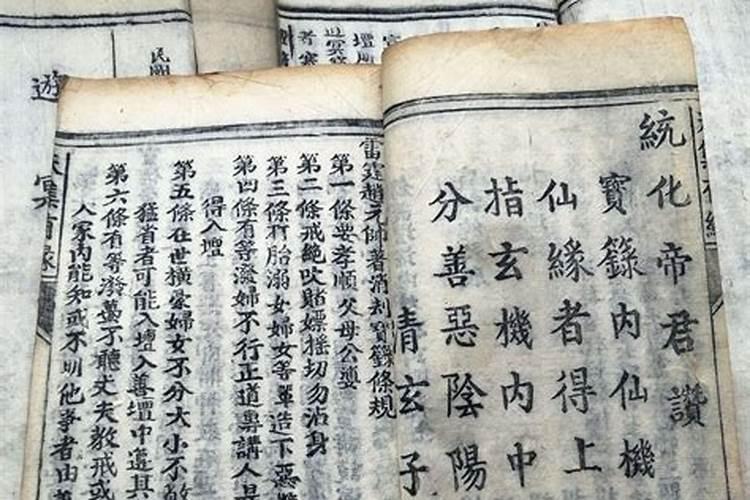 統化帝君讚
寶籙內仙機
仙緣者得上
指玄機內中
分善惡陰陽
清玄子
雷霆趙元帥著消刦寶籙條規
第一條要孝順父母公婆
第二條戒絕吹賭嫖摇切勿沾身
第三條打胎溺女婦女等單造下惡
第四條有等潑婦不行正道專講人是
得入壇
第五條在世橫蠻婦女不分大小不敬
猛省者可能入壇入善壇中遵其
第六條有等潑薑不聽丈夫教戒或
人家內能知或不明他事者由善
遊
冥
民國